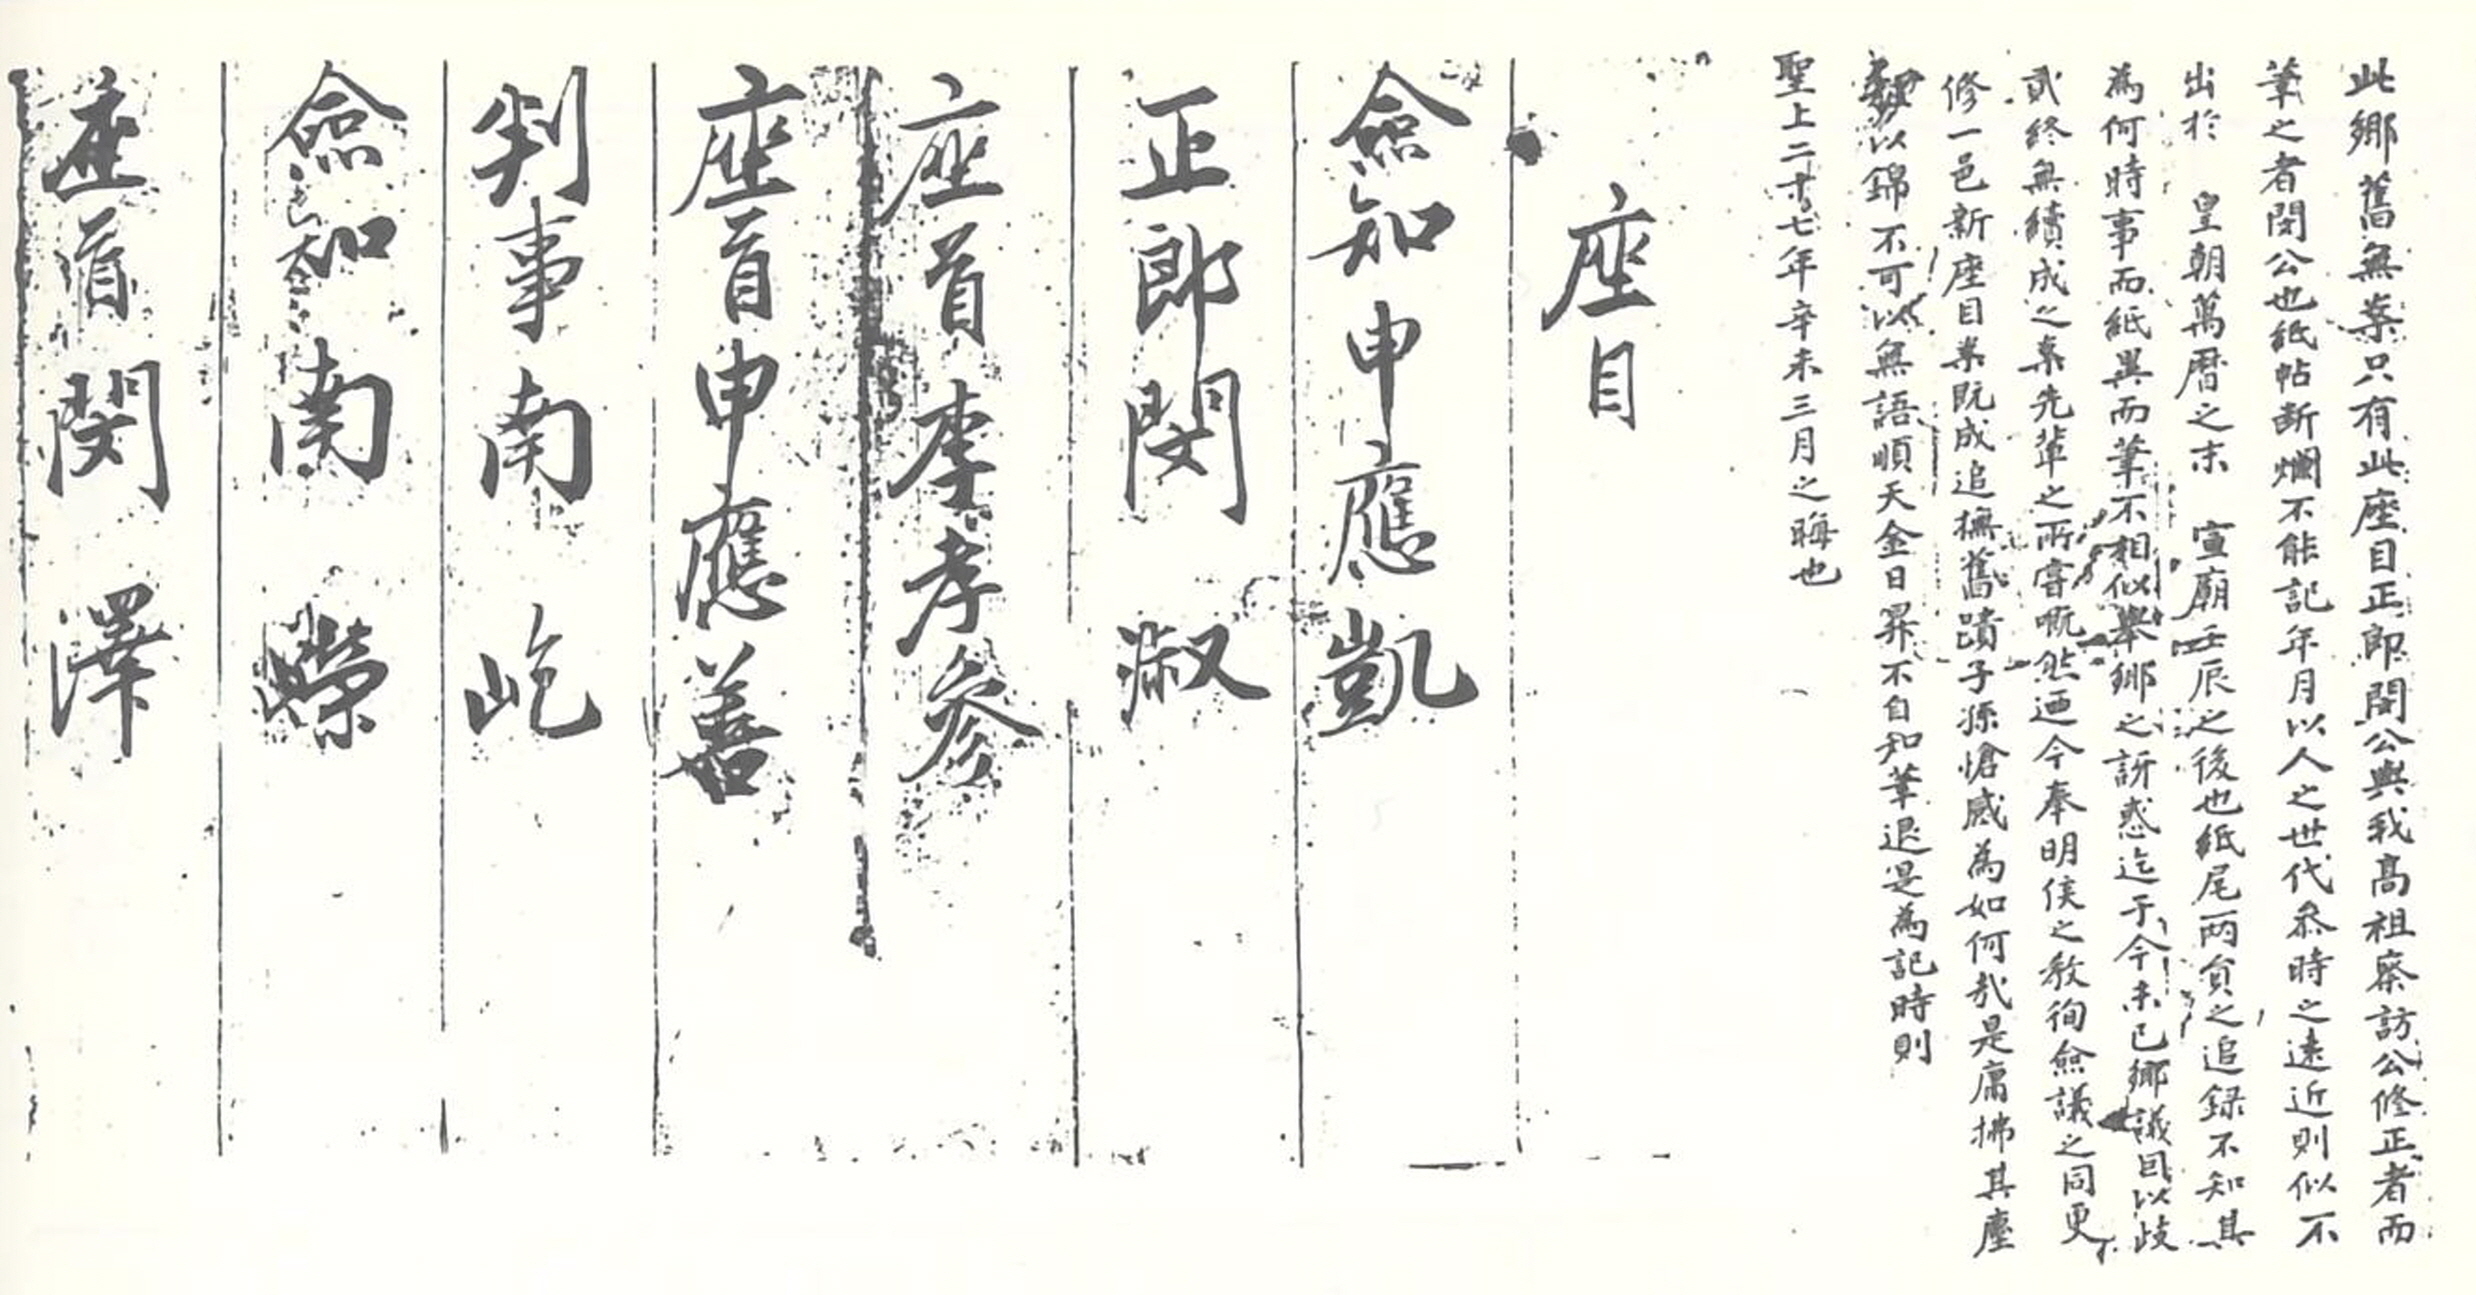 此鄕舊無案只有此座目正郎閔公與我高祖察訪公修正者而
筆之者閔公也紙帖断爛不能記年月以人之世代叅時之遠近則似不
出於 皇朝萬曆之末 宣廟壬辰之後也紙尾兩貟之追録不知其
為何時事而紙異而筆不相似擧鄕之訝惑迄于今未已鄕議囙以歧
貳終無續成之案先輩之所甞嘅然迺今奉明侯之敎徇僉議之同更
修一邑新座目案旣成追撫舊蹟子孫愴感為如何哉是庸拂其塵
以錦不可以無語順天金日昇不自知筆退是為記時則
聖上二十七年辛未三月之晦也
座目
僉知申應凱
正郎閔淑
座首李孝參
座首申應善
判事南屹
僉知南嶸
座首閔澤